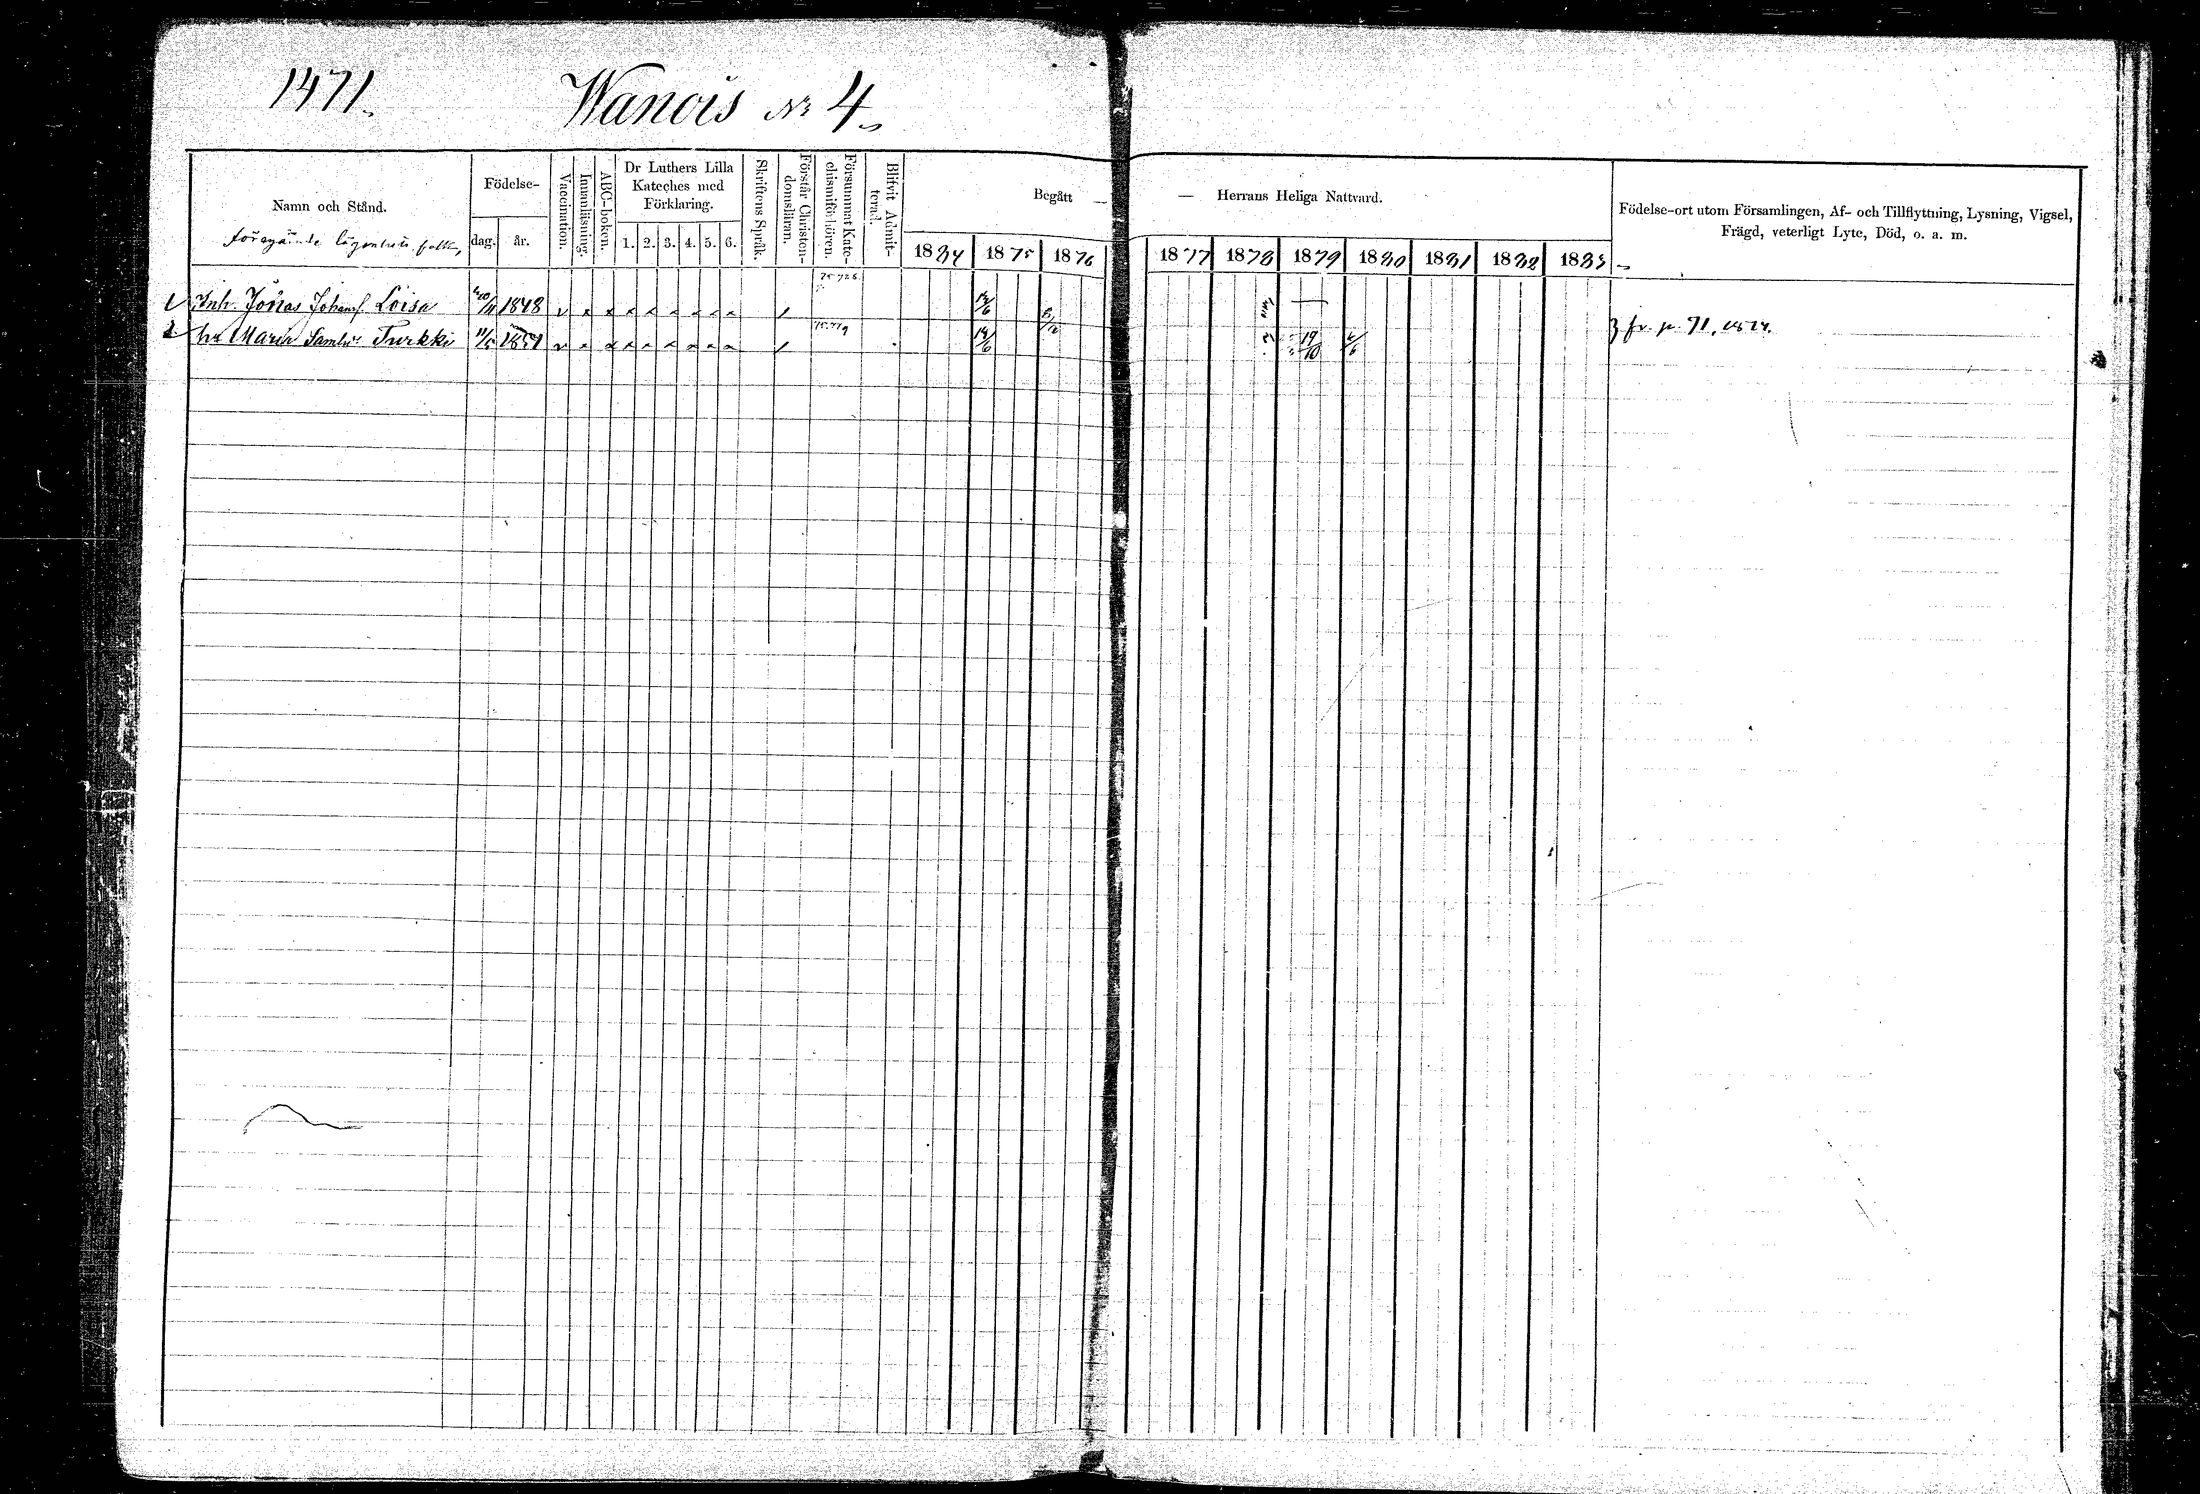 1471.
Wanois № 4.
Namn och Stånd.
Födelse-
dag.
år.
Vaccination.
Innanläsning.
ABC-boken.
Dr Luthers Lilla
Kateches med
Förklaring.
1. 2. 3. 4. 5. 6.
Skriftens Språk.
Förstår Christen-
domsläran.
Försummat Kate-
chismiförhören.
Blifvit Admit-
terad.
Begått —
— Herrans Heliga Nattvard.
1874 1875 1876 1877 1878 1879 1880 1881 1882 1883
Födelse-ort utom Församlingen, Af- och Tillflyttning, Lysning, Vigsel,
Frägd, veterligt Lyte, Död, o. a. m.
Föregående lägenhets folk,
1 Inh. Jonas Johansf. Loisa 1848 14/6
2. Maria Turkki 11/5 14/6 19/10 fr. p. 71